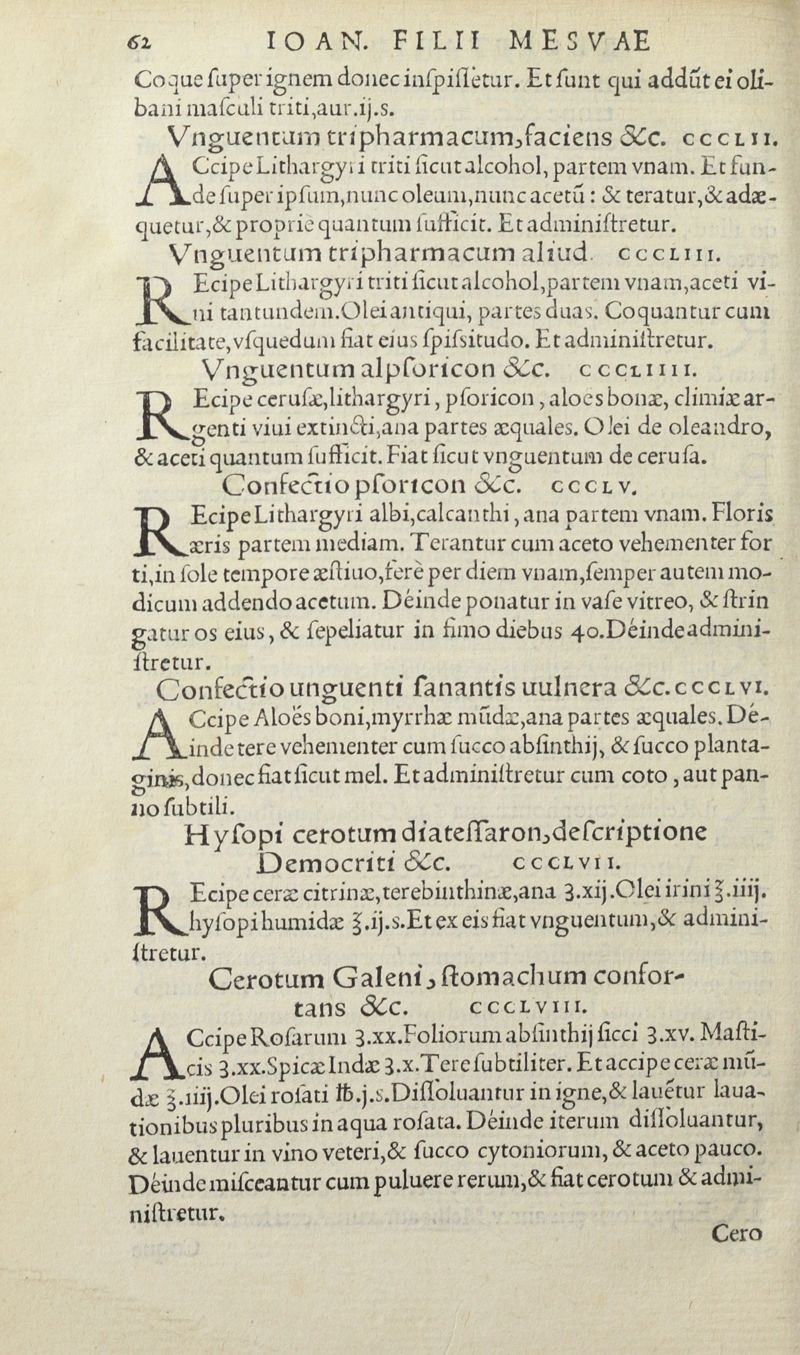 62 IOAN. FILII MESVAE
Coque ſuper ignem donec inſpiſſetur. Et ſunt qui addūt ei oli-
bani maſculi triti,aur.ij.s.
Vnguentum tripharmacum,faciens &c. CCCLII.
ACcipe Lithargyri triti ſicut alcohol, partem vnam. Et fun-
de ſuper ipſum,nunc oleum,nunc acetū: & teratur,& adæ-
quetur,& propriè quantum ſufficit. Et adminiſtretur.
Vnguentum tripharmacum aliud. CCCLIII.
REcipe Lithargyri triti ſicut alcohol,partem vnam,aceti vi-
ni tantundem.Olei antiqui, partes duas. Coquantur cum
facilitate,vſquedum fiat eius ſpiſsitudo. Et adminiſtretur.
Vnguentum alpſoricon &c. CCCLIIII.
REcipe ceruſæ,lithargyri, pſoricon, aloes bonæ, climiæ ar-
genti viui extincti,ana partes æquales. Olei de oleandro,
& aceti quantum ſufficit. Fiat ſicut vnguentum de ceruſa.
Confectio pſoricon &c. CCCLV.
REcipe Lithargyri albi,calcanthi, ana partem vnam. Floris
æris partem mediam. Terantur cum aceto vehementer for
ti,in ſole tempore æſtiuo,ferè per diem vnam,ſemper autem mo-
dicum addendo acetum. Déinde ponatur in vaſe vitreo, & ſtrin
gatur os eius, & ſepeliatur in fimo diebus 40.Déinde admini-
ſtretur.
Confectio unguenti ſanantis uulnera &c. CCCLVI.
ACcipe Aloës boni,myrrhæ mūdæ,ana partes æquales. Dé-
inde tere vehementer cum ſucco abſinthij, & ſucco planta-
ginis,donec fiat ſicut mel. Et adminiſtretur cum coto, aut pan-
no ſubtili.
Hyſopi cerotum diateſſaron,deſcriptione
Democriti &c. CCCLVII.
REcipe ceræ citrinæ,terebinthinæ,ana ʒ.xij.Olei irini ℥.iiij.
hyſopi humidæ ℥.ij.s.Et ex eis fiat vnguentum,& admini-
ſtretur.
Cerotum Galeni, ſtomachum confor-
tans &c. CCCLVIII.
ACcipe Roſarum ʒ.xx.Foliorum abſinthij ſicci ʒ.xv. Maſti-
cis ʒ.xx.Spicæ Indæ ʒ.x.Tere ſubtiliter. Et accipe ceræ mū-
dæ ℥.iiij.Olei roſati ℔.j.s.Diſſoluantur in igne,& lauétur laua-
tionibus pluribus in aqua roſata. Déinde iterum diſſoluantur,
& lauentur in vino veteri,& ſucco cytoniorum, & aceto pauco.
Déinde miſceantur cum puluere rerum,& fiat cerotum & admi-
niſtretur.
Cero